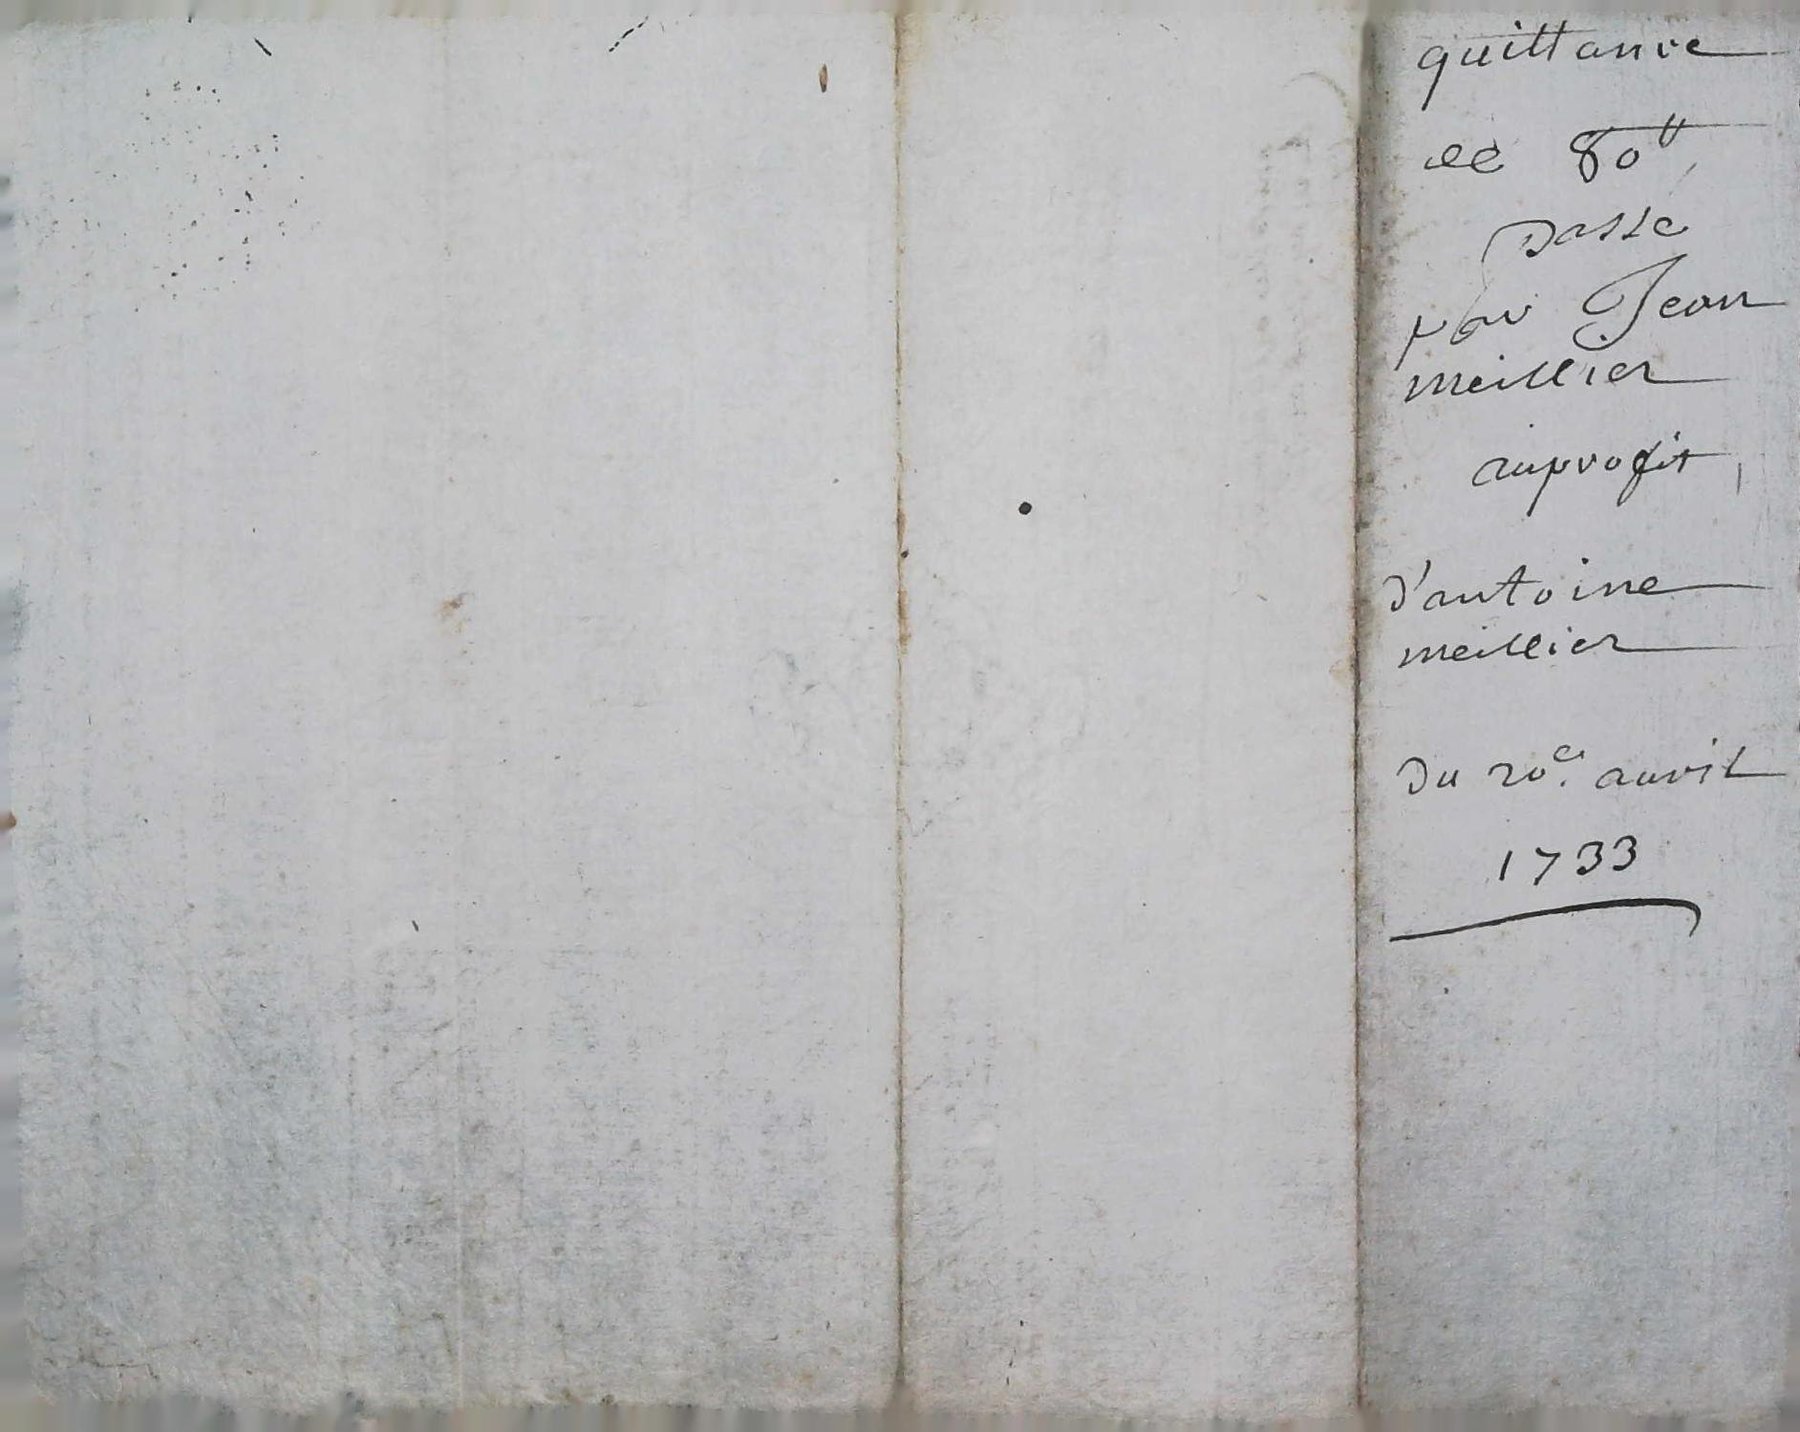 quittance
de 80tt
passe
par Jean
meillier
auprofit
d'antoine
meillier
du 20e. auril
1733